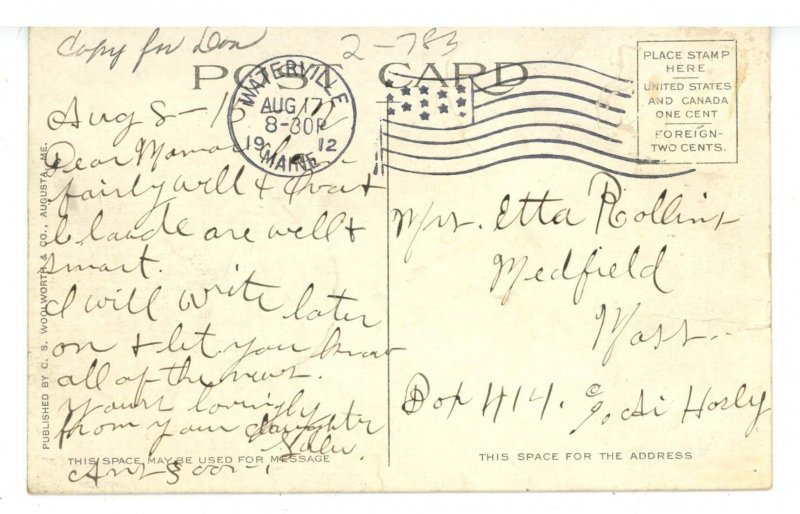 Copy for Don
2-783
POST CARD
WATERVILLE
AUG 17
8-30P
1912
MAINE
PLACE STAMP
HERE
UNITED STATES
AND CANADA
ONE CENT
FOREIGN-
TWO CENTS.
Aug 8-1
Dear Mamma
fairly well &
are well &
smart.
I will write later
on & let you know
all of the news.
Yours lovingly
from your daughter
Ans soon
THIS SPACE MAY BE USED FOR MESSAGE
PUBLISHED BY C. S. WOOLWORTH & CO., AUGUSTA, ME.
Mrs. Etta Rollins
Medfield
Mass.
Box 414. c/o
THIS SPACE FOR THE ADDRESS